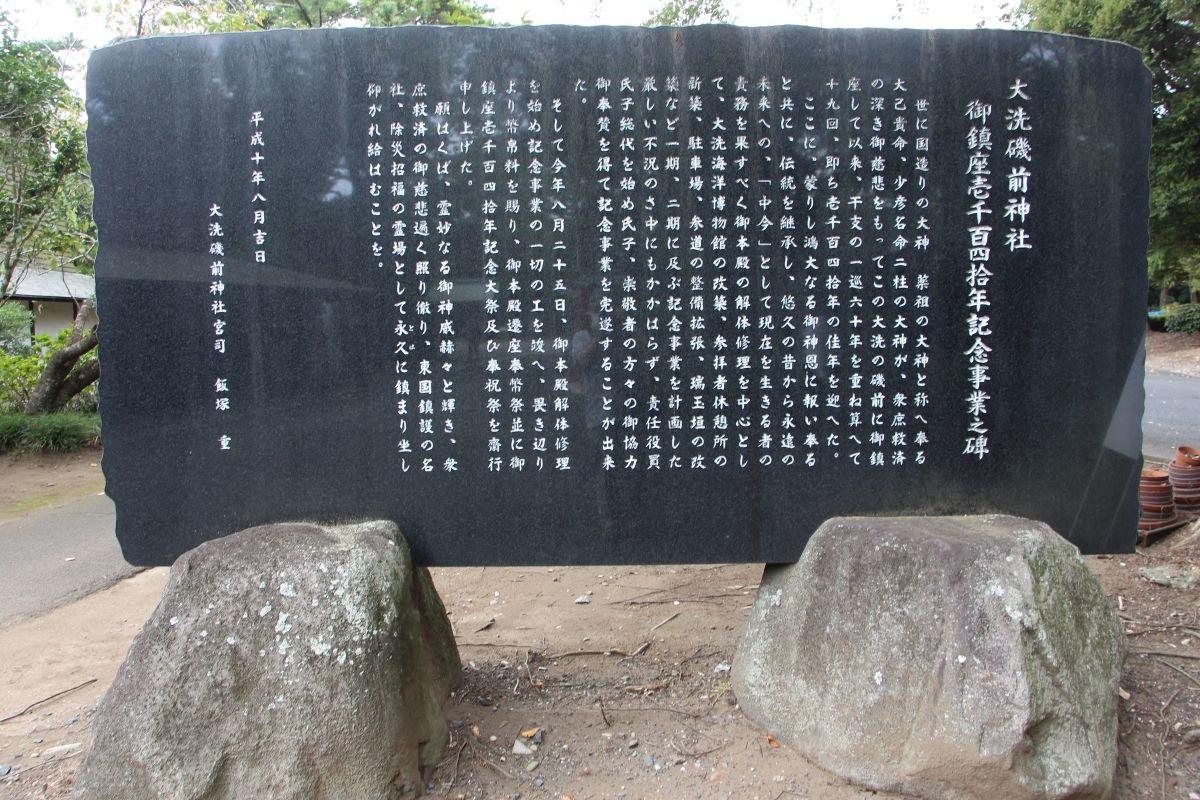 大洗磯前神社
御鎮座壱千百四拾年記念事業之碑
世に国造りの大神　薬祖の大神と称へ奉る
大己貴命、少彦名命二柱の大神が、衆庶救済
の深き御慈悲をもってこの大洗の磯前に御鎮
座して以来、干支の一巡六十年を重ね算へて
十九回、即ち壱千百四拾年の佳年を迎へた。
ここに、蒙りし鴻大なる御神恩に報い奉る
と共に、伝統を継承し、悠久の昔から永遠の
未来への、「中今」として現在を生きる者の
責務を果すべく御本殿の解体修理を中心とし
て、大洗海洋博物館の改築、参拝者休憩所の
新築、駐車場、参道の整備拡張、瑞玉垣の改
築など一期、二期に及ぶ記念事業を計画した
厳しい不況のさ中にもかかはらず、責任役員
氏子総代を始め氏子、崇敬者の方々の御協力
御奉賛を得て記念事業を完遂することが出来
た。
そして今年八月二十五日、御本殿解体修理
を始め記念事業の一切の工を竣へ、畏き辺り
より幣帛料を賜り、御本殿遷座奉幣祭並に御
鎮座壱千百四拾年記念大祭及び奉祝祭を齋行
申し上げた。
願はくば、霊妙なる御神威赫々と輝き、衆
庶救済の御慈悲遍く照り徹り、東国鎮護の名
社、除災招福の霊場として永久に鎮まり坐し
仰がれ給はむことを。
平成十年八月吉日
大洗磯前神社宮司　飯塚　重